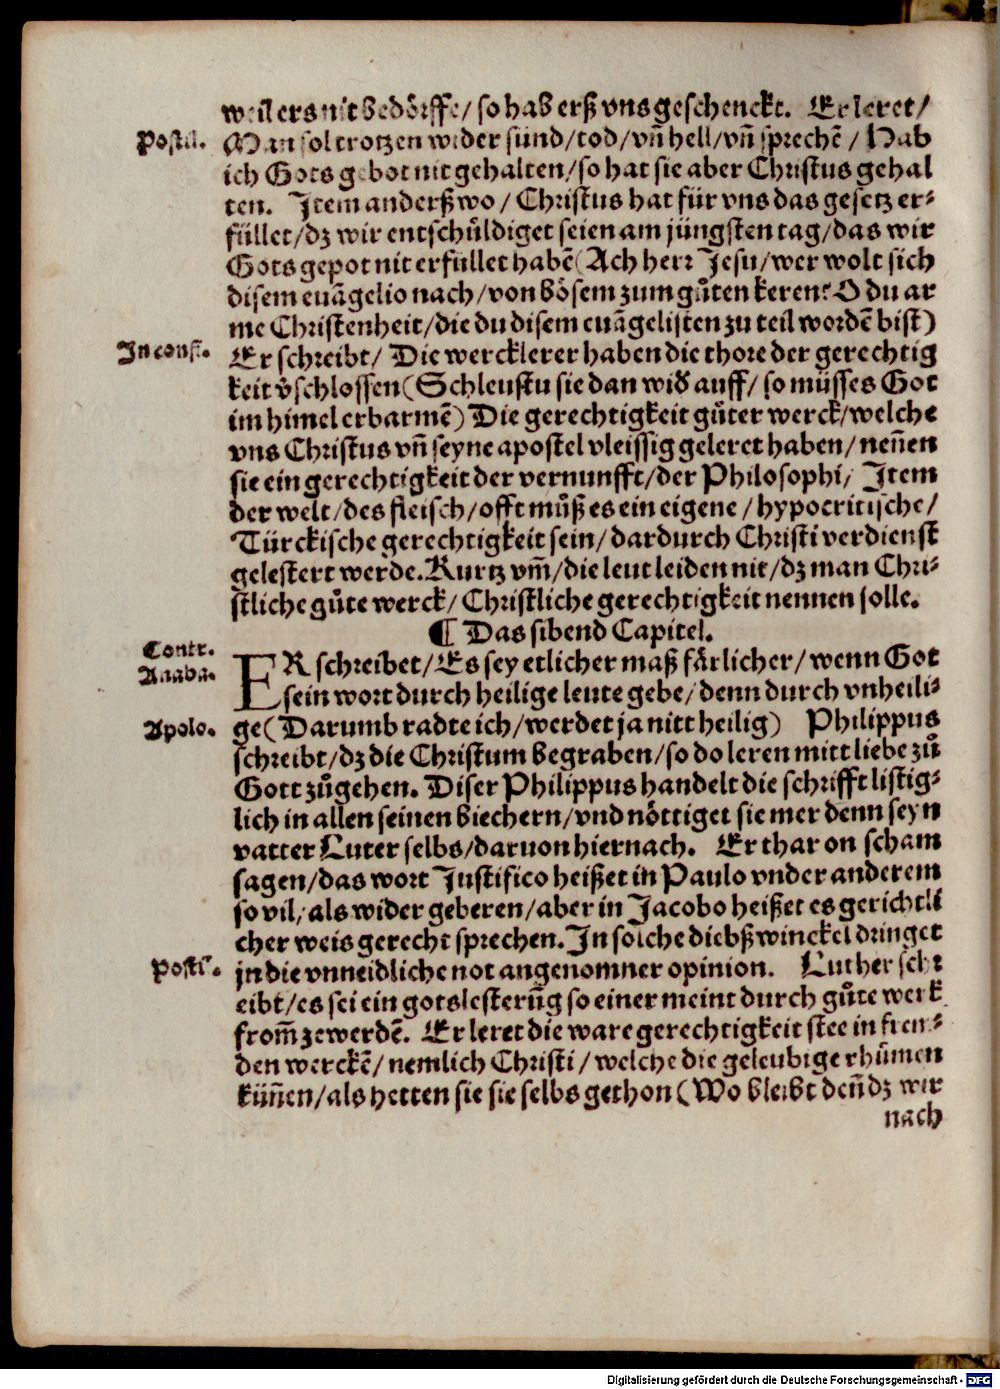 weil ers nit bedörffe/ so hab erß vns geschenckt. Er leret/
Postil.
Man sol trotzen wider sünd/tod/vn̄ hell/vn̄ sprechē / Hab
ich Gots gebot nit gehalten/so hat sie aber Christus gehal
ten. Item anderßwo / Christus hat für vns das gesetz er⸗
füllet/dz wir entschůldiget seien am jüngsten tag/das wir
Gots gepot nit erfüllet habē (Ach herr Jesu/wer wolt sich
disem euāgelio nach/von bösem zum gůten keren? O du ar
me Christenheit/die du disem euāgelisten zu teil wordē bist)
In conf.
Er schreibt/ Die wercklerer haben die thore der gerechtig
keit v̄schlossen (Schleustu sie dan wid̄ auff/ so müsses Got
im himel erbarmē) Die gerechtigkeit gůter werck/welche
vns Christus vn̄ seyne apostel vleissig geleret haben/ nen̄en
sie ein gerechtigkeit der vernunfft/der Philosophi/ Item
der welt/des fleisch/offt můß es ein eigene / hypocritische/
Türckische gerechtigkeit sein/ dardurch Christi verdienst
gelestert werde. Kurtz vm̄/die leut leiden nit/dz man Chri⸗
stliche gůte werck/ Christliche gerechtigkeit nennen solle.
¶ Das sibend Capitel.
Contr.
Anaba.
ER schreibet/ Es sey etlicher maß färlicher/wenn Got
sein wort durch heilige leute gebe/denn durch vnheili⸗
Apolo.
ge (Darumb radte ich/werdet ja nitt heilig) Philippus
schreibt/dz die Christum begraben/so do leren mitt liebe zů
Gott zůgehen. Diser Philippus handelt die schrifft listig⸗
lich in allen seinen biechern/vnd nöttiget sie mer denn seyn
vatter Luter selbs/daruon hiernach. Er thar on scham
sagen/das wort Justifico heißet in Paulo vnder anderem
so vil/als wider geberen/aber in Jacobo heißet es gerichtli
cher weis gerecht sprechen. In solche diebßwinckel dringet
Postil.
jn die vnneidliche not angenomner opinion. Luther schr
eibt/es sei ein gotslesterūg so einer meint durch gůte werk
from̄ zewerdē. Er leret die ware gerechtigkeit stee in frem⸗
den werckē/ nemlich Christi / welche die geleubige rhůmen
kün̄en/als hetten sie sie selbs gethon (Wo bleibt den̄ dz wir
nach
Digitalisierung gefördert durch die Deutsche Forschungsgemeinschaft - DFG